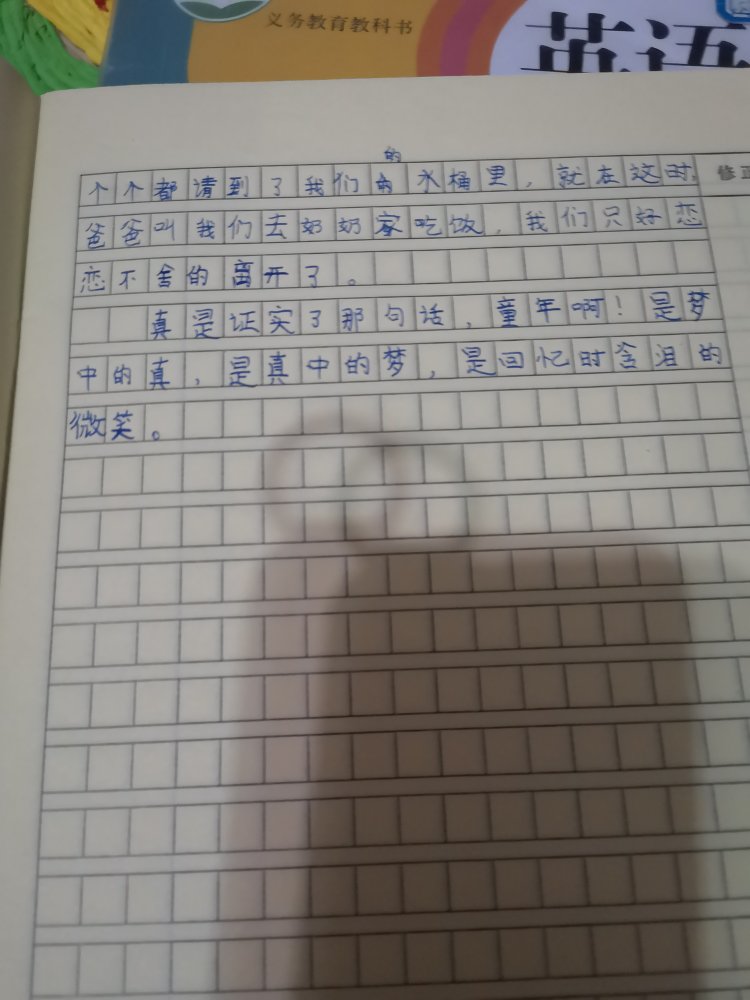 义务教育教科书
英语
的
个个都请到了我们的水桶里，就在这时，
修正
爸爸叫我们去奶奶家吃饭，我们只好恋
恋不舍的离开了。
真是证实了那句话，童年啊！是梦
中的真，是真中的梦，是回忆时含泪的
微笑。